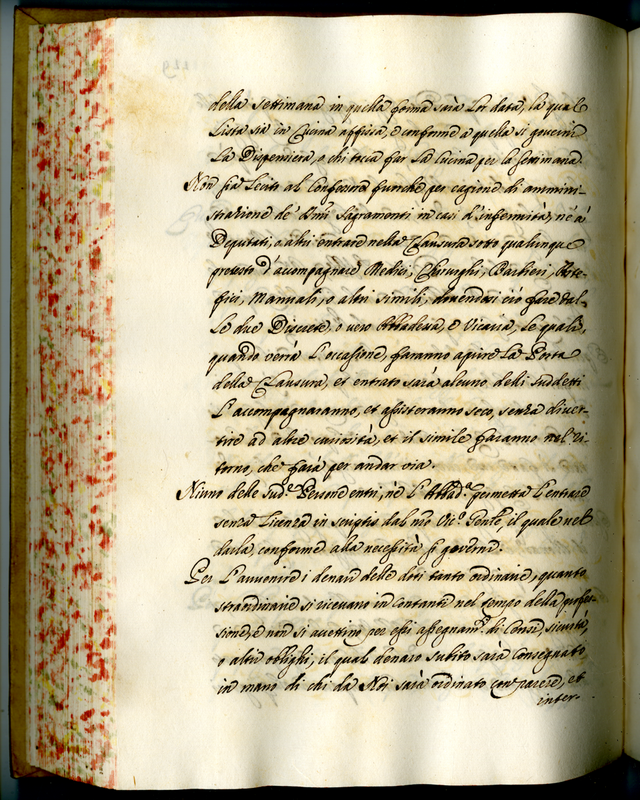 della settimana in quella forma sarà lor data, la qual
Lista sia in Cucina affissa, e conforme a quella si governi
La Dispensiera, o chi tocca far La Cucina per la settimana.
Non sia Lecito al Confessore fuorché per cagione di ammini-
strazione de' S.mi Sagramenti in casi d'infermità, né a'
Deputati, o altri entrare nella Clausura sotto qualunque
pretesto d'accompagnare Medici, Chirurghi, Barbieri, Arte-
fici, Manuali, o altri simili, dovendosi ciò fare dal-
Le due Discrete, o vero Abbadessa, e Vicaria, Le quali,
quando verrà L'occasione, faranno aprire La Porta
della Clausura, et entrato sarà alcuno delli suddetti
L'accompagnaranno, et assisteranno seco, senza diver-
tire ad altre curiosità, et il simile faranno nel ri-
torno, che farà per andar via.
Niuno delle sud.e Persone entri, né L'Abbad.a permetta L'entrare
senza Licenza in scriptis dal nro Vic.o Gen.le, il quale nel
darla conforme alla necessità si governi.
Per L'avvenire i denari delle doti tanto ordinarie, quanto
straordinarie si ricevano in contanti nel tempo della profes-
sione, e non si accettino per esse assegnam.ti di Censi, siccurtà,
o altri oblighi, il qual denaro subito sarà consegnato
in mano di chi da Noi sarà ordinato con parere, et
inter-